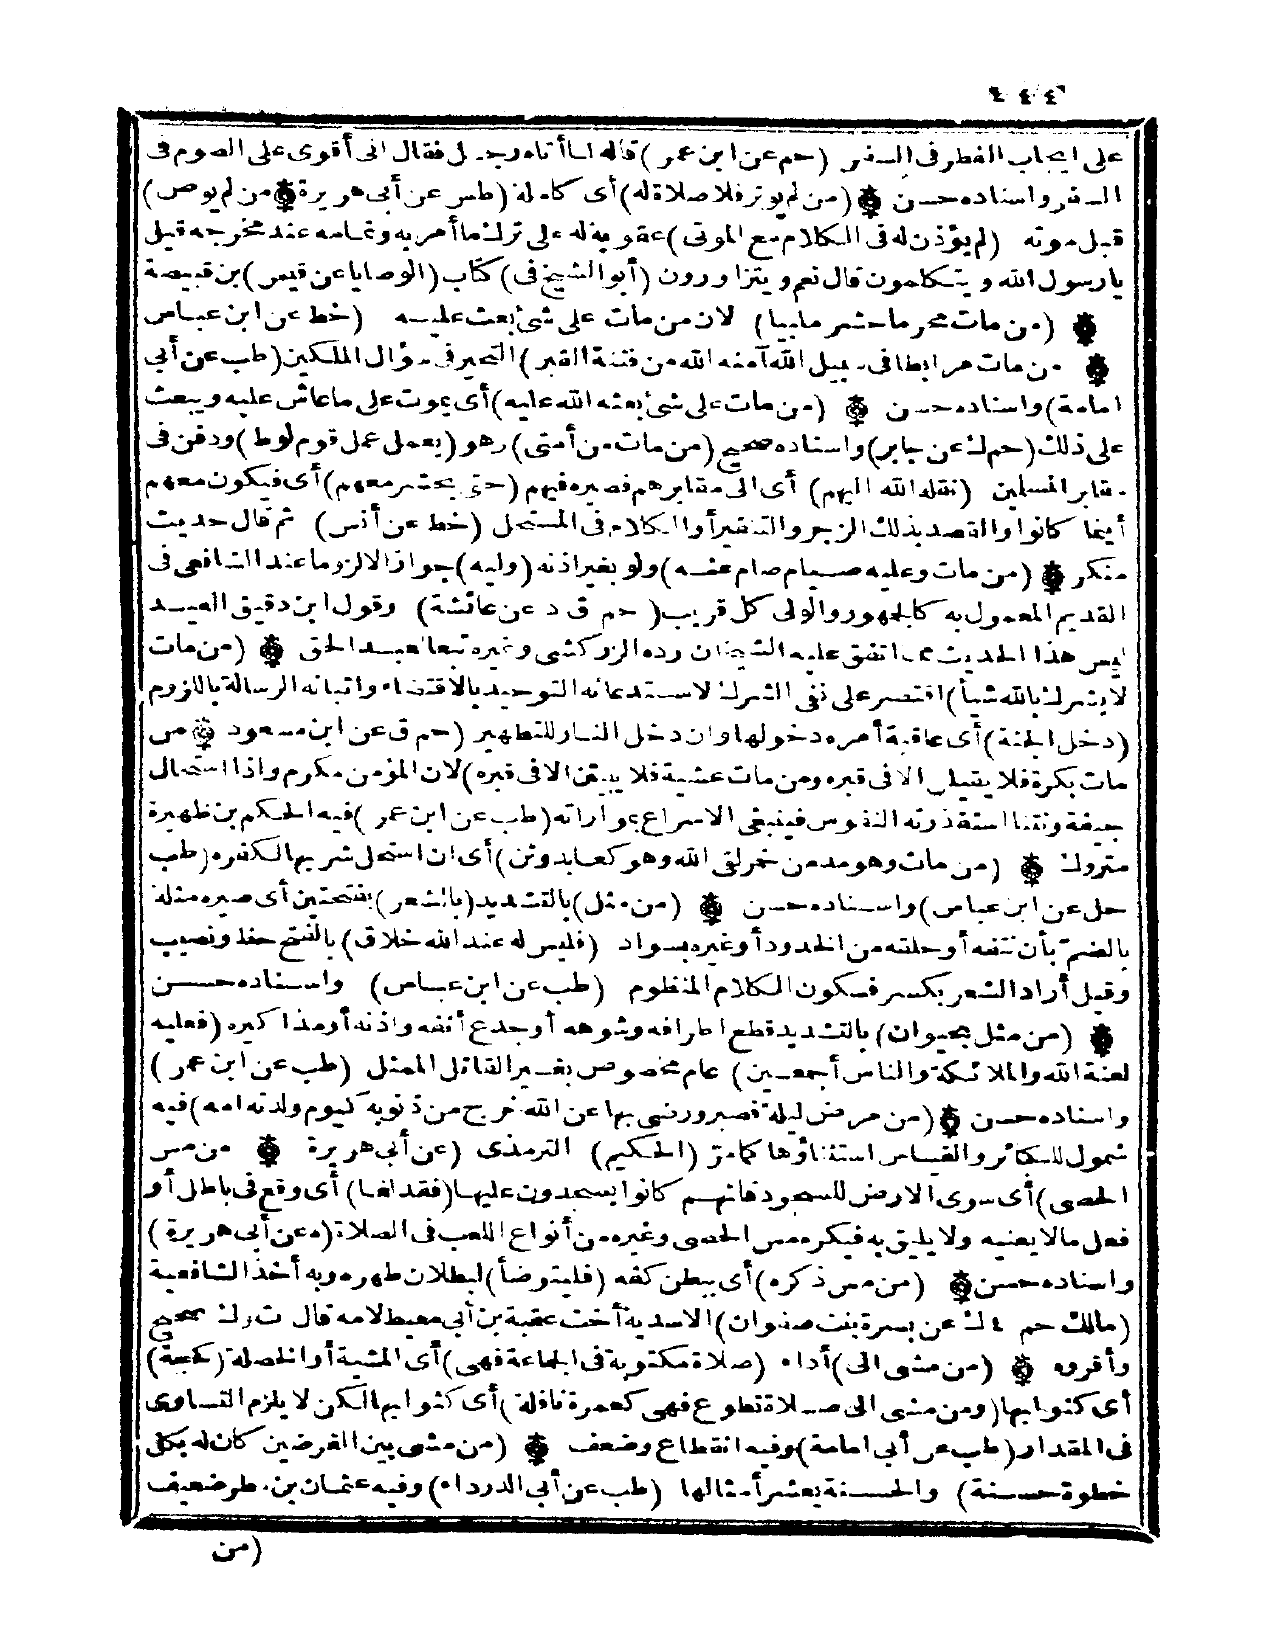 ٤٤٤
على ايجاب الفطر فى السفر (حم عن ابن عمر) قاله لما أتاه رجل فقال انى أقوى على الصوم فى
السفر واسناده حسن ۞ (من لم يوتر فلا صلاة له) أى كاملة (طس عن أبى هريرة ۞ من لم يوص)
قبل موته (لم يؤذن له فى الكلام مع الموتى) عقوبة له على ترك ما أمر به وتمامه عند مخرجه قيل
يا رسول الله ويتكلمون قال نعم ويتزاورون (أبو الشيخ فى) كتاب (الوصايا عن قيس) بن قبيصة
۞ (من مات محرما حشر ملبيا) لان من مات على شئ بعث عليه (خط عن ابن عباس
۞ من مات مرابطا فى سبيل الله آمنه الله من فتنة القبر) التحير فى سؤال الملكين (طب عن أبى
امامة) واسناده حسن ۞ (من مات على شئ بعثه الله عليه) أى يموت على ما عاش عليه ويبعث
على ذلك (حم ك عن جابر) واسناده صحيح (من مات من أمتى) وهو (يعمل عمل قوم لوط) ودفن فى
مقابر المسلمين (نقله الله اليهم) أى الى مقابرهم فصيره فيهم (حتى يحشر معهم) أى فيكون معهم
أينما كانوا والقصد بذلك الزجر والتنفير أو الكلام فى المستحل (خط عن أنس) ثم قال حديث
منكر ۞ (من مات وعليه صيام صام عنه) ولو بغير اذنه (وليه) جوازا لا لزوما عند الشافعى فى
القديم المعمول به كالجمهور والولى كل قريب (حم ق د عن عائشة) وقول ابن دقيق العيد
ليس هذا الحديث مما اتفق عليه الشيخان رده الزركشى وغيره تبعا لعبد الحق ۞ (من مات
لا يشرك بالله شيأ) اقتصر على نفى الشرك لاستدعائه التوحيد بالاقتضاء واثباته الرسالة باللزوم
(دخل الجنة) أى عاقبة أمره دخولها وان دخل النار للتطهير (حم ق عن ابن مسعود ۞ من
مات بكرة فلا يقيلن الا فى قبره ومن مات عشية فلا يبيتن الا فى قبره) لان المؤمن مكرم واذا استحال
جيفة ونتنا استقذرته النفوس فينبغى الاسراع بمواراته (طب عن ابن عمر) فيه الحكم بن ظهيرة
متروك ۞ (من مات وهو مدمن خمر لقى الله وهو كعابد وثن) أى ان استحل شربها لكفره (طب
حل عن ابن عباس) واسناده حسن ۞ (من مثل) بالتشديد (بالشعر) بفتحتين أى صيره مثلة
بالضم بأن نتفه أو حلقه من الخدود أو غيره بسواد (فليس له عند الله خلاق) بالفتح حظ ونصيب
وقيل أراد الشعر بكسر فسكون الكلام المنظوم (طب عن ابن عباس) واسناده حسن
۞ (من مثل بحيوان) بالتشديد قطع اطرافه وشوهه أو جدع أنفه واذنه أو مذاكيره (فعليه
لعنة الله والملائكة والناس أجمعين) عام مخصوص بغير القاتل الممثل (طب عن ابن عمر)
واسناده حسن ۞ (من مرض ليلة فصبر ورضى بها عن الله خرج من ذنوبه كيوم ولدته امه) فيه
شمول للكبائر والقياس استثناؤها كما مر (الحكيم) الترمذى (عن أبى هريرة ۞ من مس
الحصى) أى سوى الارض للسجود فانهم كانوا يسجدون عليها (فقد لغا) أى وقع فى باطل أو
فعل ما لا يعنيه ولا يليق به فيكره مس الحصى وغيره من أنواع اللعب فى الصلاة (ه عن أبى هريرة)
واسناده حسن ۞ (من مس ذكره) أى ببطن كفه (فليتوضأ) لبطلان طهره وبه أخذ الشافعية
(مالك حم ٤ ك عن بسرة بنت صفوان) الاسدية أخت عقبة بن أبى معيط لامه قال ت و ك صحيح
وأقروه ۞ (من مشى الى) أداء (صلاة مكتوبة فى الجماعة فهى) أى المشية أو الخصلة (كحجة)
أى كثوابها (ومن مشى الى صلاة تطوع فهى كعمرة نافلة) أى كثوابها لكن لا يلزم التساوى
فى المقدار (طب عن أبى امامة) وفيه انقطاع وضعف ۞ (من مشى بين الغرضين كان له بكل
خطوة حسنة) والحسنة بعشر أمثالها (طب عن أبى الدرداء) وفيه عثمان بن مطر ضعيف
(من